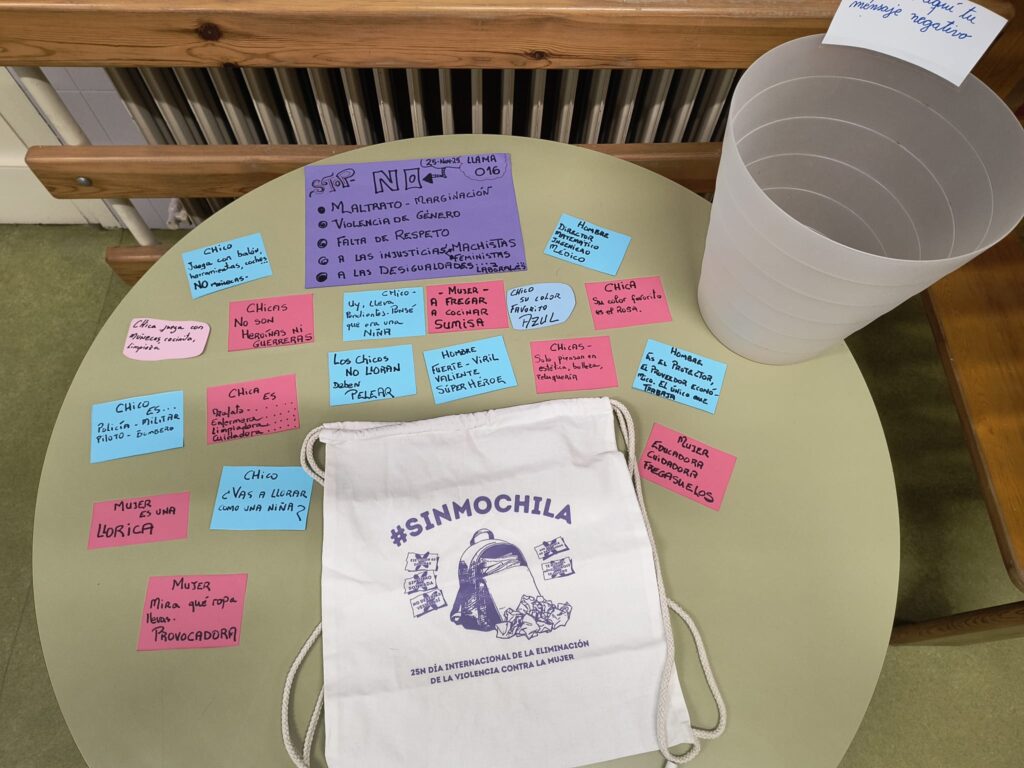 aquí tu
mensaje negativo
25-Nov-25 LLAMA
016
STOP NO
MALTRATO - MARGINACIÓN
VIOLENCIA DE GÉNERO
FALTA DE RESPETO
A LAS INJUSTICIAS MACHISTAS
FEMINISTAS
A LAS DESIGUALDADES...
LABORALES
HOMBRE
DIRECTOR
MATEMATICO
INGENIERO
MEDICO
CHICO
Juega con balón,
herramientas, coches
NO MUÑECAS.
CHICA juega con
MUÑECAS cocinado,
Limpieza
CHICAS
NO SON
HEROÍNAS NI
GUERRERAS
CHICO -
Uy, LLeva
Pendientes. PENSÉ
que era una
NIÑA
- MUJER -
A FREGAR
A COCINAR
SUMISA
CHICO
SU COLOR
FAVORITO
AZUL
CHICA
Su color favorito
es el ROSA.
Los CHICOS
NO LLORAN
Deben
PELEAR
HOMBRE
FUERTE - VIRIL
VALIENTE
SÚPER HEROE
CHICAS -
Solo piensan en
estética, belleza,
Peluquería
HOMBRE
ES EL PROTECTOR,
EL PROVEEDOR ECONÓ-
MICO. EL ÚNICO QUE
TRABAJA
CHICO
ES...
POLICÍA - MILITAR
PILOTO - BOMBERO
CHICA ES
Enfermera
Limpiadora
Cuidadora
MUJER
EDUCADORA
CUIDADORA
FREGASUELOS
MUJER
ES UNA
LLORICA
CHICO
¿VAS A LLORAR
COMO UNA NIÑA?
MUJER
Mira qué ropa
llevas.
PROVOCADORA
#SINMOCHILA
25N DÍA INTERNACIONAL DE LA ELIMINACIÓN
DE LA VIOLENCIA CONTRA LA MUJER